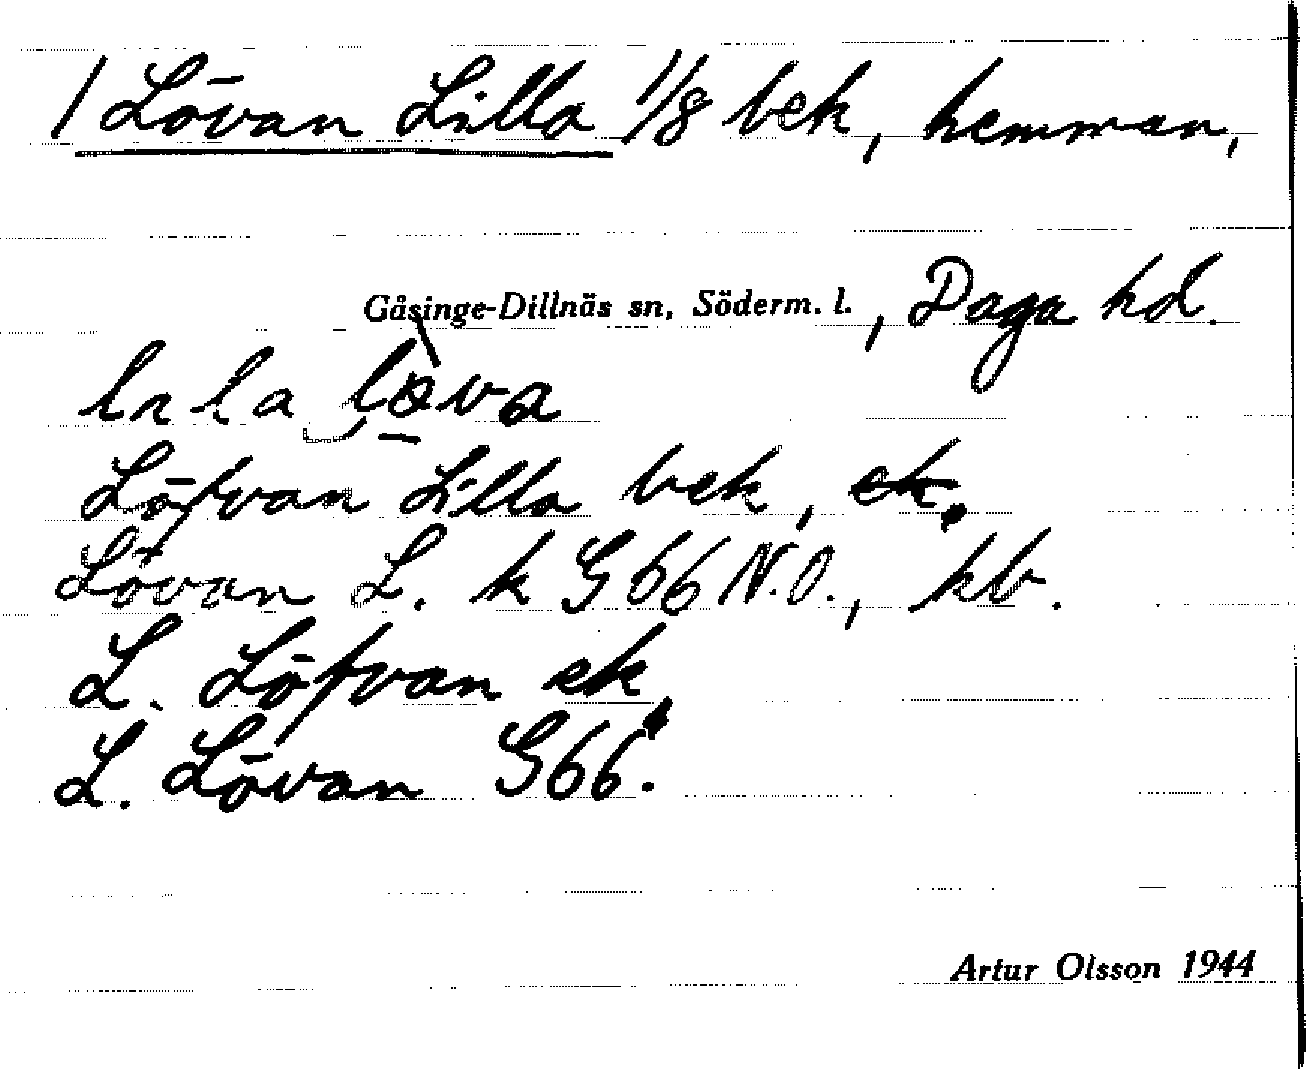 / Lövan Lilla 1/8 bek, hemman,
Gåsinge-Dillnäs sn, Söderm. l., Daga hd.
Löfvan Lilla bek, ek.
Lövan L. k G66 N.O., kb.
L. Löfvan ek
L. Lövan G66.
Artur Olsson 1944